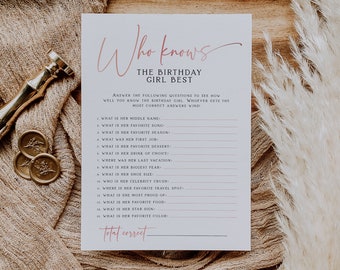 Who knows
THE BIRTHDAY
GIRL BEST
ANSWER THE FOLLOWING QUESTIONS TO SEE HOW
WELL YOU KNOW THE BIRTHDAY GIRL. WHOEVER GETS THE
MOST CORRECT ANSWERS WINS!
1. WHAT IS HER MIDDLE NAME?
2. WHAT IS HER FAVORITE SONG?
3. WHAT IS HER FAVORITE SEASON?
4. WHAT WAS HER FIRST JOB?
5. WHAT IS HER FAVORITE DESSERT?
6. WHAT IS HER DRINK OF CHOICE?
7. WHERE WAS HER LAST VACATION?
8. WHAT IS HER BIGGEST FEAR?
9. WHAT IS HER SHOE SIZE?
10. WHO IS HER CELEBRITY CRUSH?
11. WHERE IS HER FAVORITE TRAVEL SPOT?
12. WHAT IS SHE MOST PROUD OF?
13. WHAT IS HER FAVORITE FOOD?
14. WHAT IS HER STAR SIGN?
15. WHAT IS HER FAVORITE COLOR?
total correct